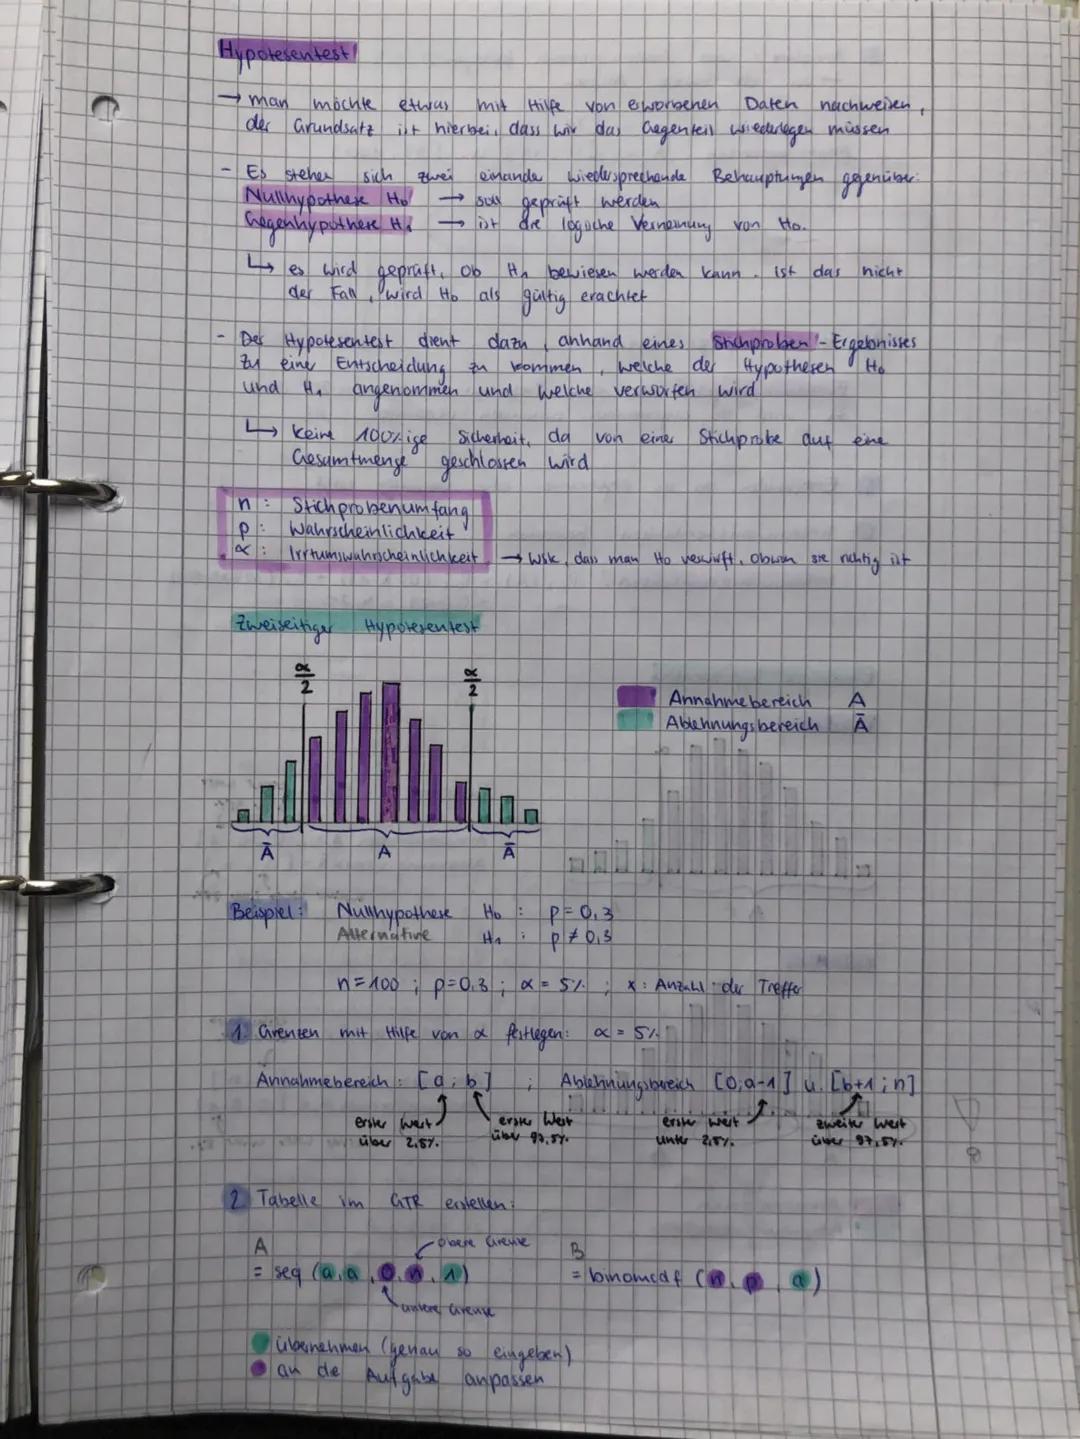 Hypotesentest
→ man möchte etwas mit Hilfe von erworbenen Daten nachweisen,
der Grundsatz ist hierbei, dass wir das Gegenteil wiederlegen müssen
- Es stehen sich zwei einander wiedersprechende Behauptungen gegenüber:
Nullhypothese H₀ → soll geprüft werden
Gegenhypothese H₁ → ist die logische Verneinung von H₀.
↳ es wird geprüft, ob H₁ bewiesen werden kann. ist das nicht
der Fall, wird H₀ als gültig erachtet
- Der Hypotesentest dient dazu, anhand eines Stichproben-Ergebnisses
zu einer Entscheidung zu kommen, welche der Hypothesen H₀
und H₁ angenommen und welche verworfen wird
↳ keine 100%ige Sicherheit, da von einer Stichprobe auf eine
Gesamtmenge geschlossen wird
n : Stichprobenumfang
p : Wahrscheinlichkeit
α : Irrtumswahrscheinlichkeit → Wsk, dass man H₀ verwirft, obwohl sie richtig ist
Zweiseitiger Hypotesentest
α/2 α/2
Annahmebereich A
Ablehnungsbereich Ā
Ā A Ā
Beispiel: Nullhypothese H₀ : p = 0,3
Alternative H₁ : p ≠ 0,3
n = 100 ; p = 0,3 ; α = 5% ; x : Anzahl der Treffer
1. Grenzen mit Hilfe von α festlegen: α = 5%
Annahmebereich : [a ; b] ; Ablehnungsbereich [0;a-1] u. [b+1 ; n]
erster Wert erster Wert erster Wert zweiter Wert
über 2,5%. über 97,5%. unter 2,5%. über 97,5%.
2. Tabelle im GTR erstellen:
A obere Grenze B
= seq (a, a, 0, n, 1) = binomcdf (n, p, a)
untere Grenze
übernehmen (genau so eingeben)
an die Aufgabe anpassen